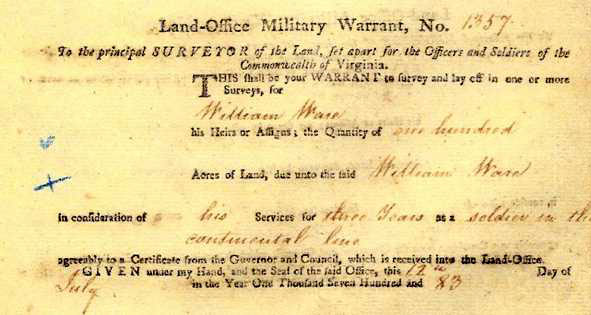 Land-Office Military Warrant, No. 1357
To the principal SURVEYOR of the Land, set apart for the Officers and Soldiers of the
Commonwealth of Virginia.
THIS shall be your WARRANT to survey and lay off in one or more
Surveys, for
William Ware
his Heirs or Assigns; the Quantity of one hundred
Acres of Land, due unto the said William Ware
in consideration of his Services for three Years as a soldier in the
continental line
agreeably to a Certificate from the Governor and Council, which is received into the Land-Office.
GIVEN under my Hand, and the Seal of the said Office, this 12th Day of
July in the Year One Thousand Seven Hundred and 83